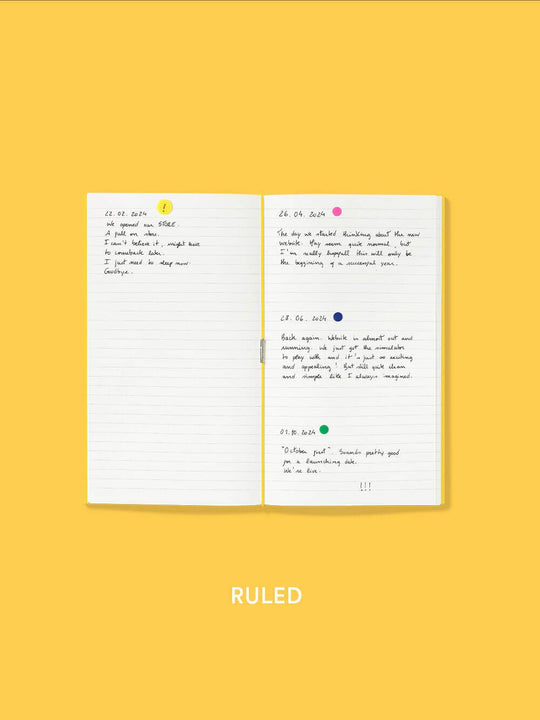 22.02.2024 !
We opened our STORE.
A full on store.
I can't believe it, might have
to comeback later.
I just need to sleep now.
Goodbye.
26.04.2024
The day we started thinking about the new
website. May seem quite normal, but
I'm really hopefull this will only be
the beggining of a successful year.
28.06.2024
Back again. Website is almost out and
running. We just got the simulator
to play with and it's just so exciting
and appealing! But still quite clean
and simple like I always imagined.
01.10.2024
"October first". Sounds pretty good
for a launching date.
We're live.
!!!
RULED